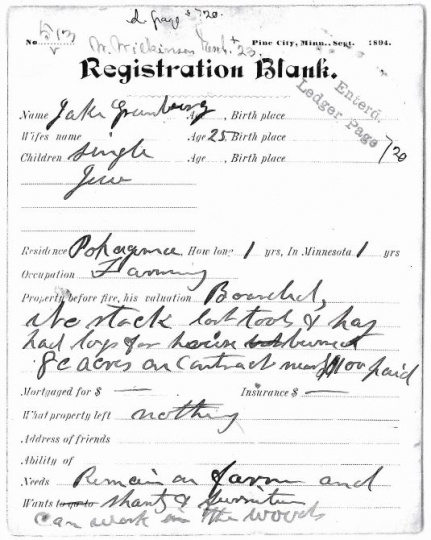 d page 720.
No. 5/13 W. Wilkinson Pine City, Minn., Sept. 1894.
Registration Blank.
Enterd. Ledger Page 720
Name Jake Age , Birth place
Wifes name Age 25, Birth place
Children Single Age , Birth place
Jew
Residence Pokegama How long 1 yrs, In Minnesota 1 yrs
Occupation Farming
Property before fire, his valuation Boarded,
No stock lost tools & hay
had logs for house burned
80 acres on contract $100 paid
Mortgaged for $ — Insurance $ —
What property left nothing
Address of friends
Ability of
Needs Remain on farm and
Wants to go to shanty & furniture
Can work in the woods